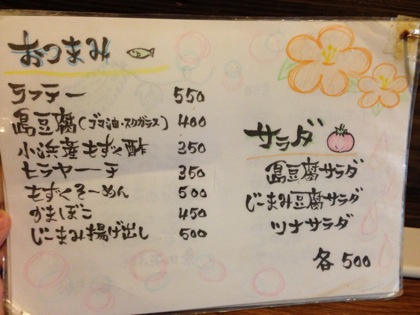 おつまみ
ラフテー 550
島豆腐(ゴマ油・スクガラス) 400
小浜産もずく酢 350
ヒラヤーチ 350
もずくそーめん 500
かまぼこ 450
じーまみ揚げ出し 500
サラダ
島豆腐サラダ
じーまみ豆腐サラダ
ツナサラダ
各500